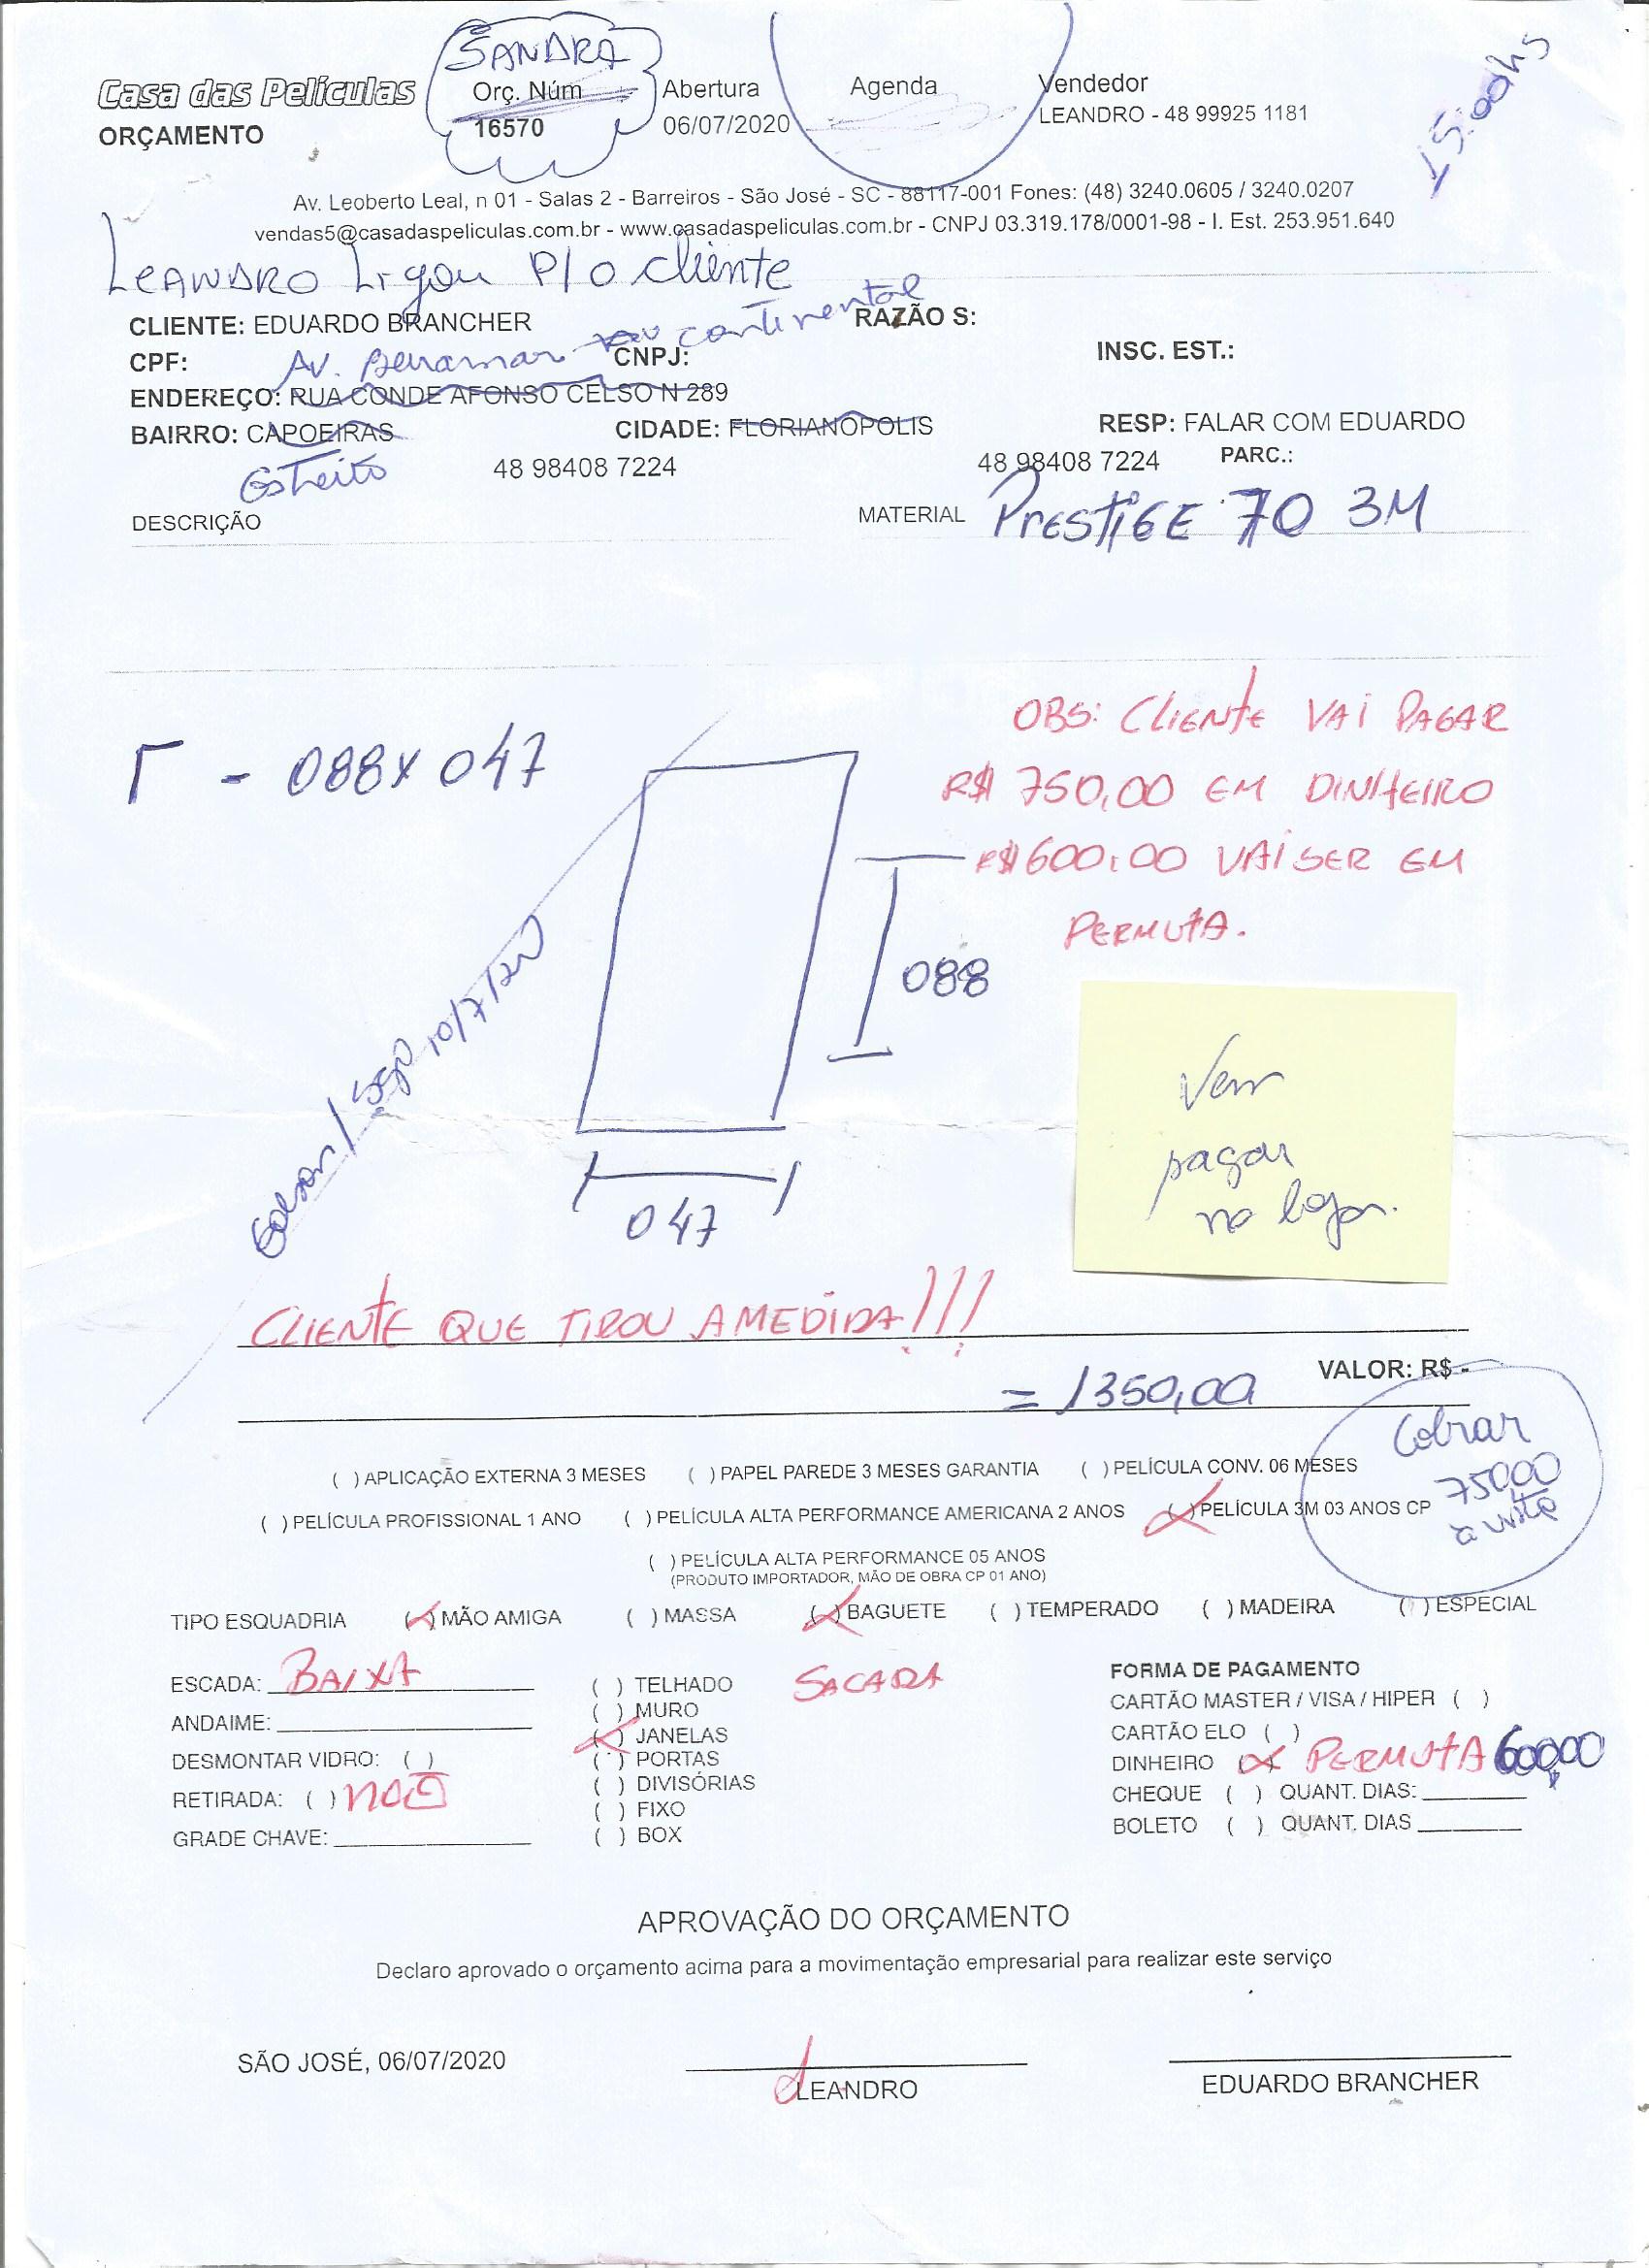 SANDRA
Casa das Películas
ORÇAMENTO
Orç. Núm
16570
Abertura
06/07/2020
Agenda
Vendedor
LEANDRO - 48 99925 1181
15:00hs
Av. Leoberto Leal, n 01 - Salas 2 - Barreiros - São José - SC - 88117-001 Fones: (48) 3240.0605 / 3240.0207
vendas5@casadaspeliculas.com.br - www.casadaspeliculas.com.br - CNPJ 03.319.178/0001-98 - I. Est. 253.951.640
LEANDRO Ligou P/ o cliente
CLIENTE: EDUARDO BRANCHER
RAZÃO S:
CPF:
CNPJ:
INSC. EST.:
Av. Beiramar continental
ENDEREÇO: RUA CONDE AFONSO CELSO N 289
BAIRRO: CAPOEIRAS
CIDADE: FLORIANÓPOLIS
RESP: FALAR COM EDUARDO
Estreito
48 98408 7224
48 98408 7224
PARC.:
DESCRIÇÃO
MATERIAL PRESTIGE 70 3M
OBS: CLIENTE VAI PAGAR
R$ 750,00 EM DINHEIRO
R$ 600,00 VAI SER EM
PERMUTA.
- 088 X 047
088
047
10/7/20
Vem
pagar
na loja.
CLIENTE QUE TIROU A MEDIDA!!!
VALOR: R$ -
= 1350,00
Cobrar
750,00
à vista
( ) APLICAÇÃO EXTERNA 3 MESES ( ) PAPEL PAREDE 3 MESES GARANTIA ( ) PELÍCULA CONV. 06 MESES
( ) PELÍCULA PROFISSIONAL 1 ANO ( ) PELÍCULA ALTA PERFORMANCE AMERICANA 2 ANOS (X) PELÍCULA 3M 03 ANOS CP
( ) PELÍCULA ALTA PERFORMANCE 05 ANOS
(PRODUTO IMPORTADOR, MÃO DE OBRA CP 01 ANO)
TIPO ESQUADRIA (X) MÃO AMIGA ( ) MASSA (X) BAGUETE ( ) TEMPERADO ( ) MADEIRA ( ) ESPECIAL
ESCADA: BAIXA
ANDAIME:
DESMONTAR VIDRO: ( )
RETIRADA: ( ) NÃO
GRADE CHAVE:
( ) TELHADO
( ) MURO
(X) JANELAS
( ) PORTAS
( ) DIVISÓRIAS
( ) FIXO
( ) BOX
SACADA
FORMA DE PAGAMENTO
CARTÃO MASTER / VISA / HIPER ( )
CARTÃO ELO ( )
DINHEIRO (X) PERMUTA 600,00
CHEQUE ( ) QUANT. DIAS:
BOLETO ( ) QUANT. DIAS
APROVAÇÃO DO ORÇAMENTO
Declaro aprovado o orçamento acima para a movimentação empresarial para realizar este serviço
SÃO JOSÉ, 06/07/2020
LEANDRO
EDUARDO BRANCHER